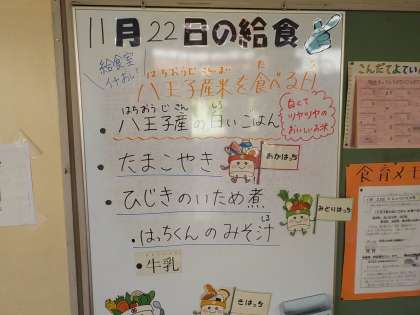 11月22日の給食
給食室
イチおし!
はちおうじさんまい た ひ
八王子産米を食べる日
はちおうじさん しろ
・八王子産の白いごはん
白くて
ツヤツヤの
おいしいお米
・たまごやき
あかはっち
・ひじきのいため煮
みどりはっち
しる
・はっちくんのみそ汁
・牛乳
きはっち
こんだてよてい
食育メモ